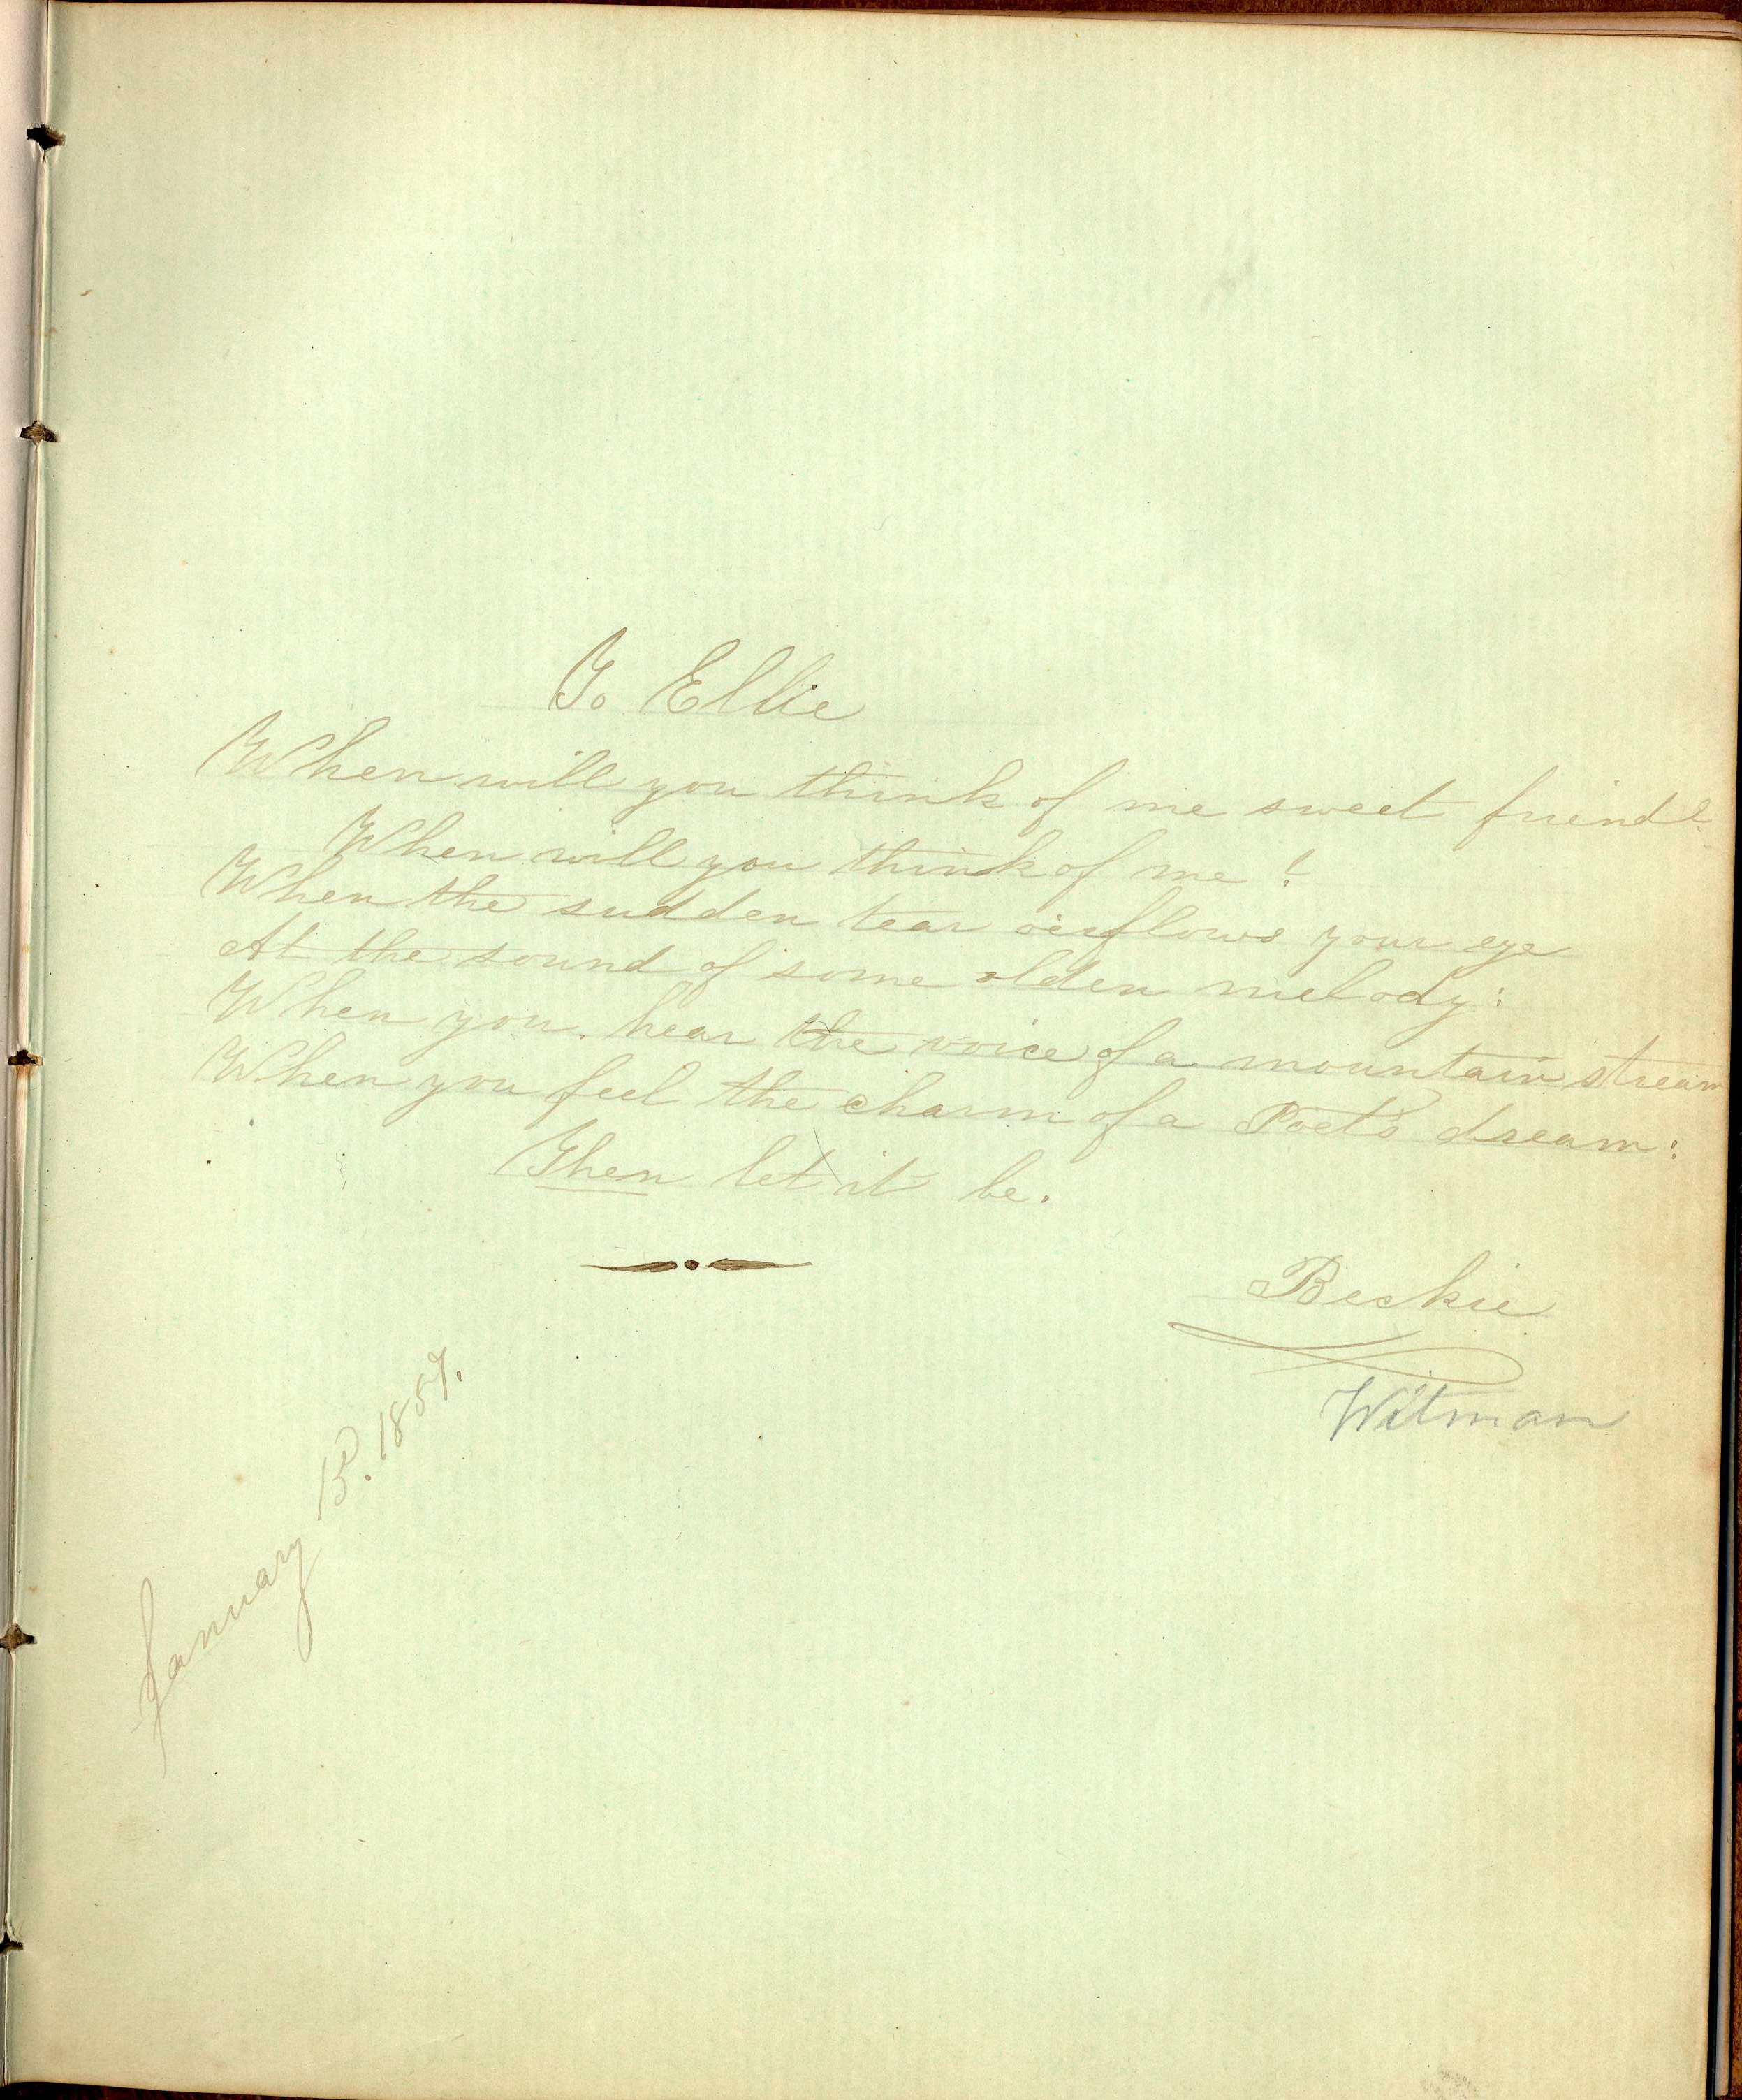 To Ellie
When will you think of me sweet friend?
When will you think of me!
When the sudden tear o'erflows your eye
At the sound of some olden melody:
When you hear the voice of a mountain stream
When you feel the charm of a Poet's dream:
Then let it be.
Beckie
Witman
January 1857.